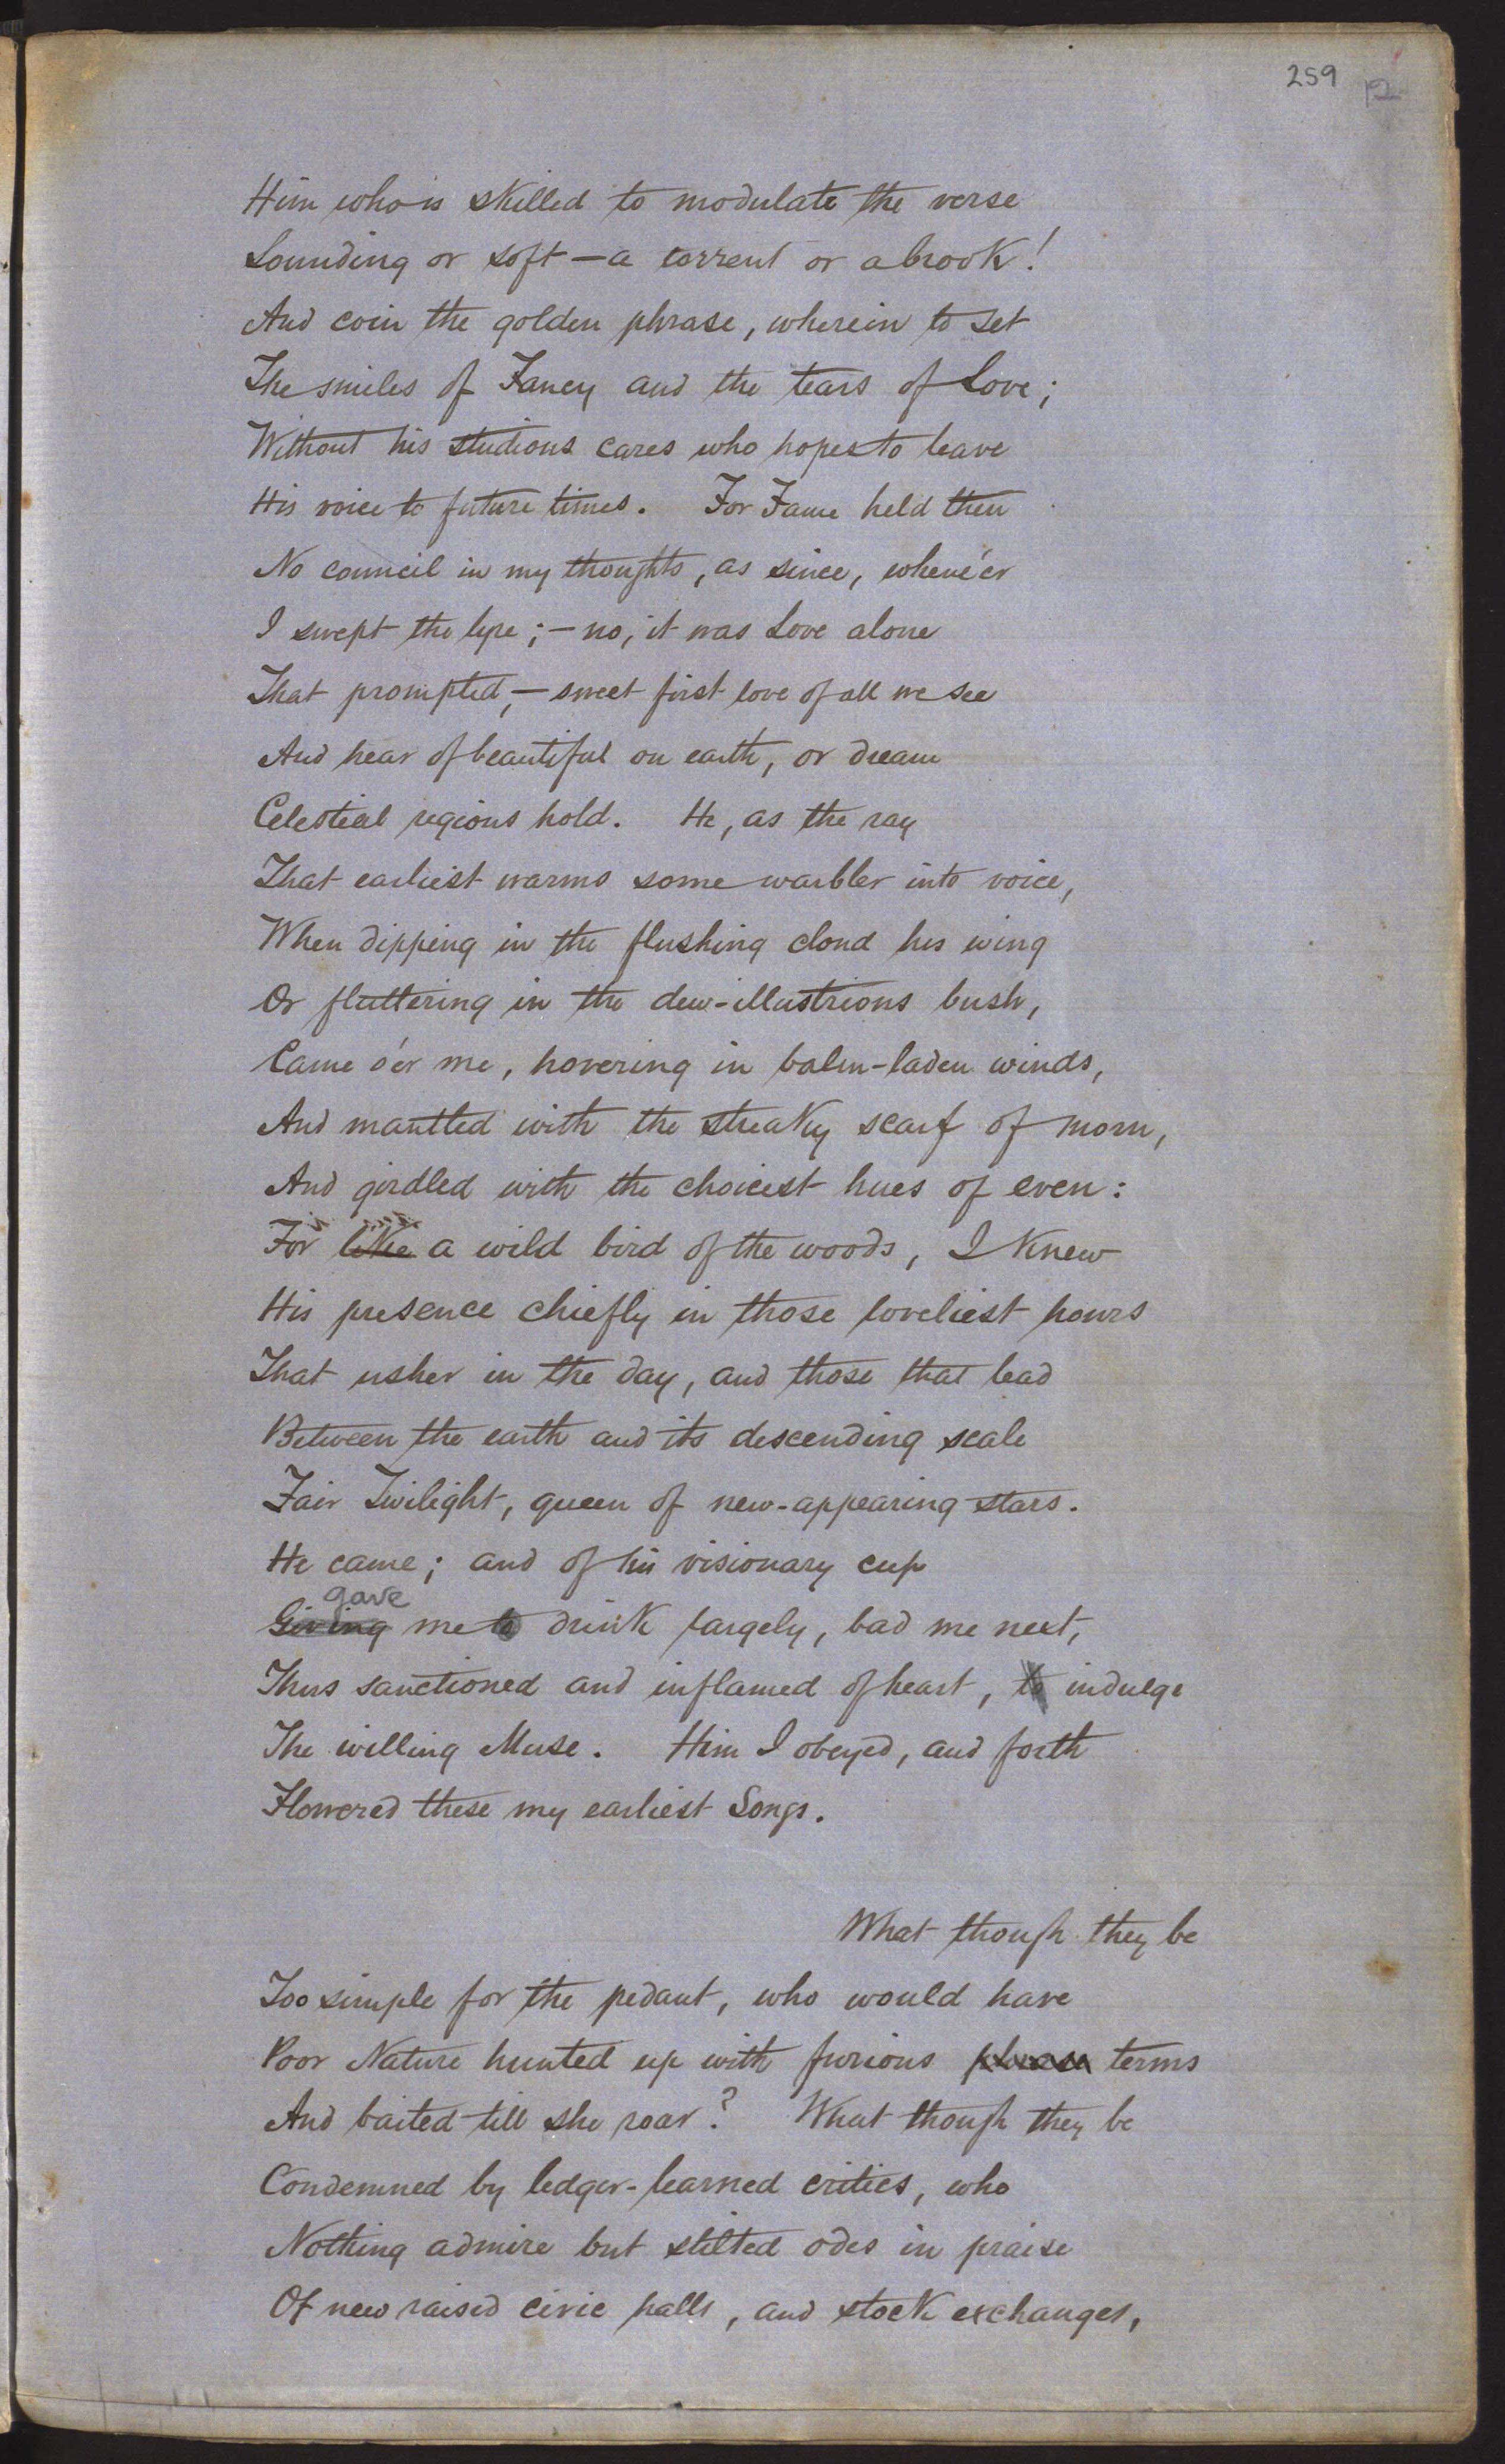 259 12
Him who is skilled to modulate the verse
Sounding or soft — a torrent or a brook!
And coin the golden phrase, wherein to set
The smiles of Fancy and the tears of Love;
Without his studious cares who hopes to leave
His voice to future times. For Fame held then
No council in my thoughts, as since, whene'er
I swept the lyre; — no, it was Love alone
That prompted, — sweet first love of all we see
And hear of beautiful on earth, or dream
Celestial regions hold. He, as the ray
That earliest warms some warbler into voice,
When dipping in the flushing cloud his wing
Or fluttering in the dew-illustrious bush,
Came o'er me, hovering in balm-laden winds,
And mantled with the streaky scarf of morn,
And girdled with the choicest hues of even:
For like a wild bird of the woods, I knew
His presence chiefly in those loveliest hours
That usher in the day, and those that lead
Between the earth and its descending scale
Fair Twilight, queen of new-appearing stars.
He came; and of his visionary cup
gave
Giving me to drink largely, bad me next,
Thus sanctioned and inflamed of heart, to indulge
The willing Muse. Him I obeyed, and forth
Flowered these my earliest Songs.
What though they be
Too simple for the pedant, who would have
Poor Nature hunted up with furious phrase terms
And baited till she roar? What though they be
Condemned by ledger-learned critics, who
Nothing admire but stilted odes in praise
Of new raised civic halls, and stock exchanges,